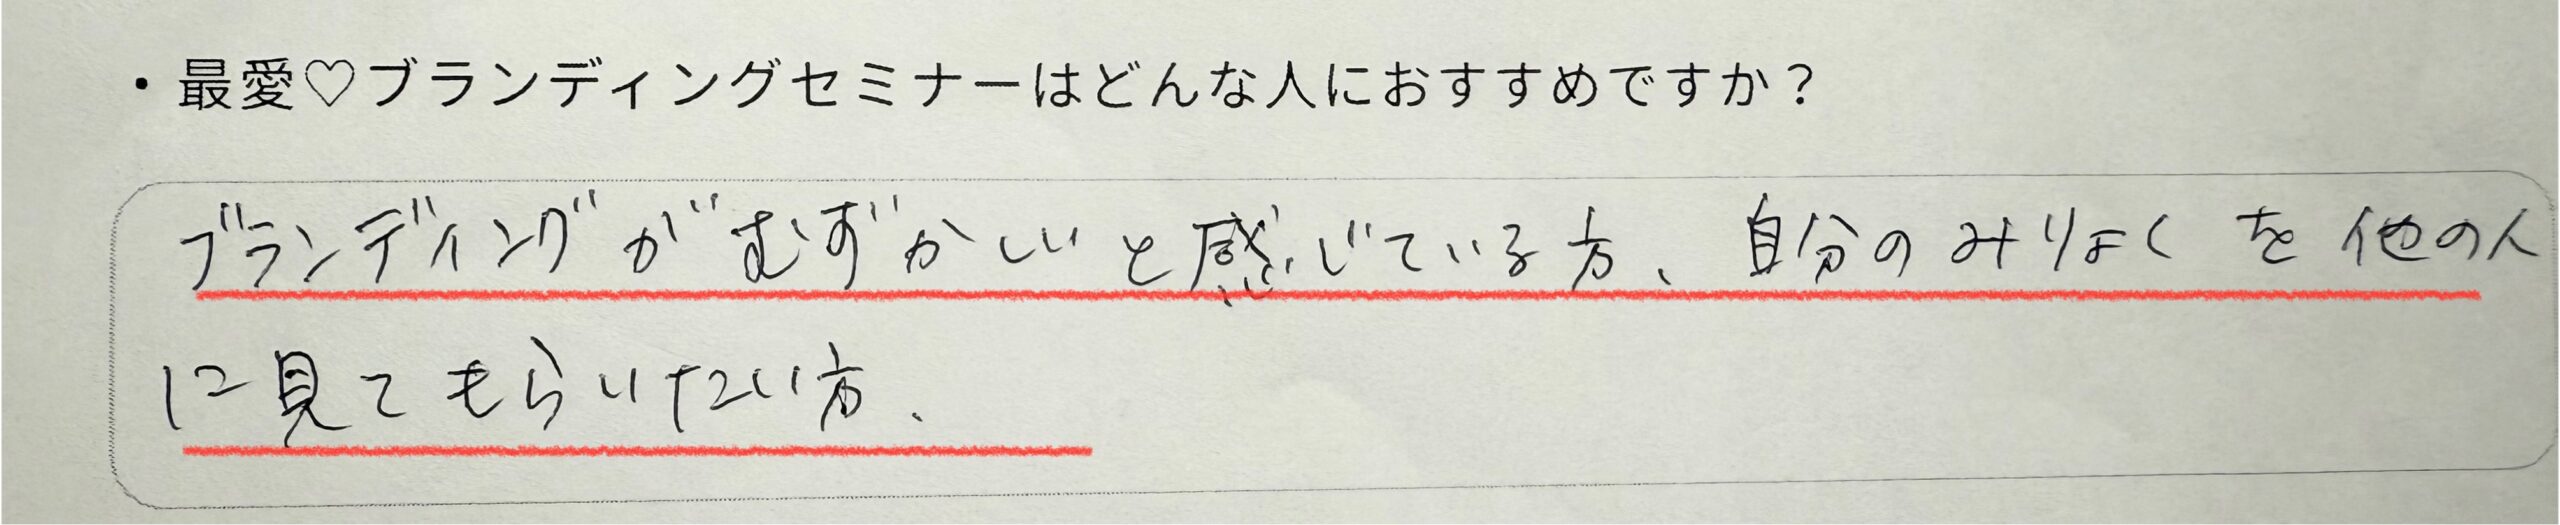 ・最愛♡ブランディングセミナーはどんな人におすすめですか？
ブランディングがむずかしいと感じている方、自分のみりょくを他の人
に見てもらいたい方、